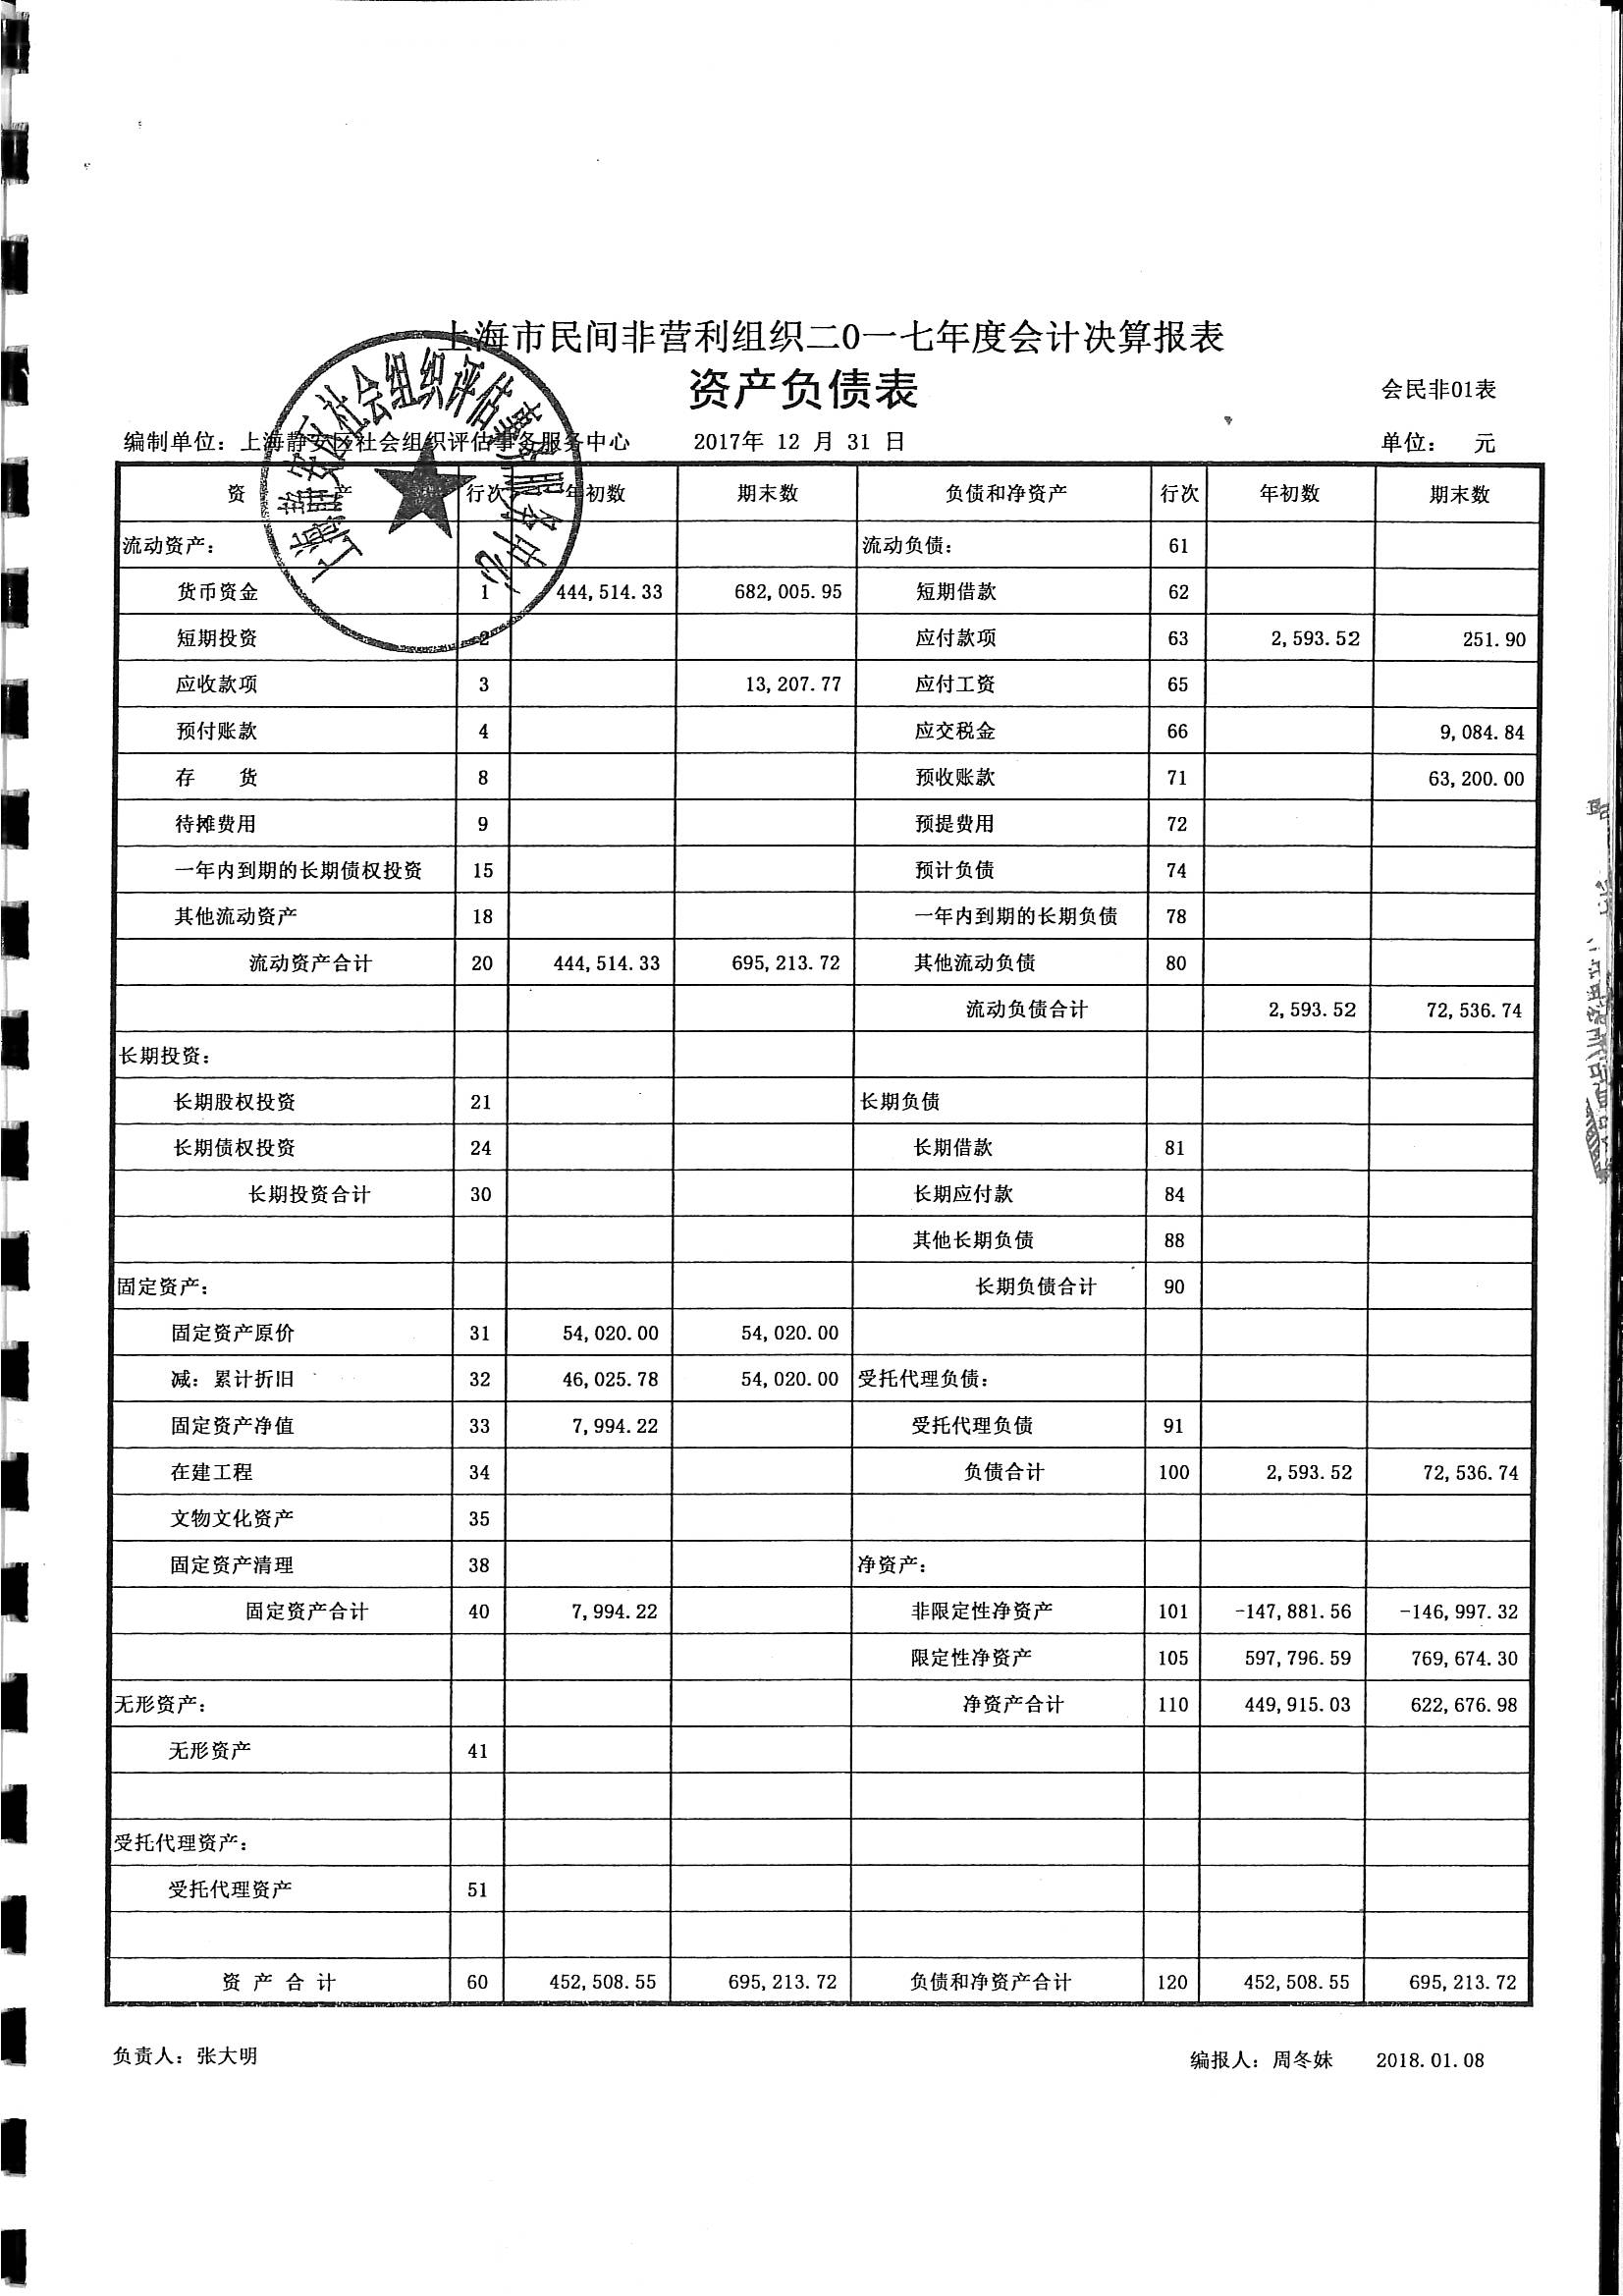 上海市民间非营利组织二0一七年度会计决算报表
资产负债表
会民非01表
编制单位：上海静安区社会组织评估事务服务中心 2017年 12 月 31 日 单位： 元
上海静安区社会组织评估事务服务中心
资 产 行次 年初数 期末数 负债和净资产 行次 年初数 期末数
流动资产： 流动负债： 61
货币资金 1 444,514.33 682,005.95 短期借款 62
短期投资 2 应付款项 63 2,593.52 251.90
应收款项 3 13,207.77 应付工资 65
预付账款 4 应交税金 66 9,084.84
存 货 8 预收账款 71 63,200.00
待摊费用 9 预提费用 72
一年内到期的长期债权投资 15 预计负债 74
其他流动资产 18 一年内到期的长期负债 78
流动资产合计 20 444,514.33 695,213.72 其他流动负债 80
流动负债合计 2,593.52 72,536.74
长期投资：
长期股权投资 21 长期负债
长期债权投资 24 长期借款 81
长期投资合计 30 长期应付款 84
其他长期负债 88
固定资产： 长期负债合计 90
固定资产原价 31 54,020.00 54,020.00
减：累计折旧 32 46,025.78 54,020.00 受托代理负债：
固定资产净值 33 7,994.22 受托代理负债 91
在建工程 34 负债合计 100 2,593.52 72,536.74
文物文化资产 35
固定资产清理 38 净资产：
固定资产合计 40 7,994.22 非限定性净资产 101 -147,881.56 -146,997.32
限定性净资产 105 597,796.59 769,674.30
无形资产： 净资产合计 110 449,915.03 622,676.98
无形资产 41
受托代理资产：
受托代理资产 51
资 产 合 计 60 452,508.55 695,213.72 负债和净资产合计 120 452,508.55 695,213.72
负责人：张大明 编报人：周冬妹 2018.01.08